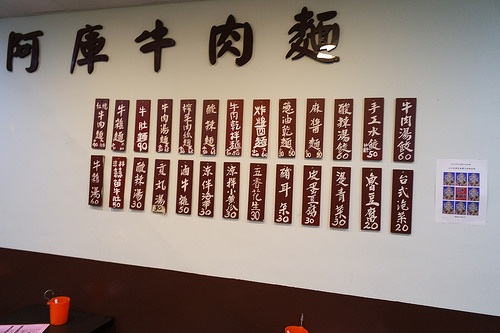 阿庫牛肉麵
紅燒牛肉麵
牛雜麵
牛肚麵 90
牛肉湯麵
榨菜肉絲麵
酸辣麵
牛肉乾拌麵
炸醬麵
蔥油乾麵
麻醬麵
酸辣湯餃 60
手工水餃 50
牛肉湯餃 60
牛雜湯 60
酸辣湯 30
貢丸湯
滷牛雜 50
涼伴海帶 30
涼拌小黃瓜 30
五香花生 30
豬耳朵 30
皮蛋豆腐 30
燙青菜 30
魯豆腐 20
台式泡菜 20